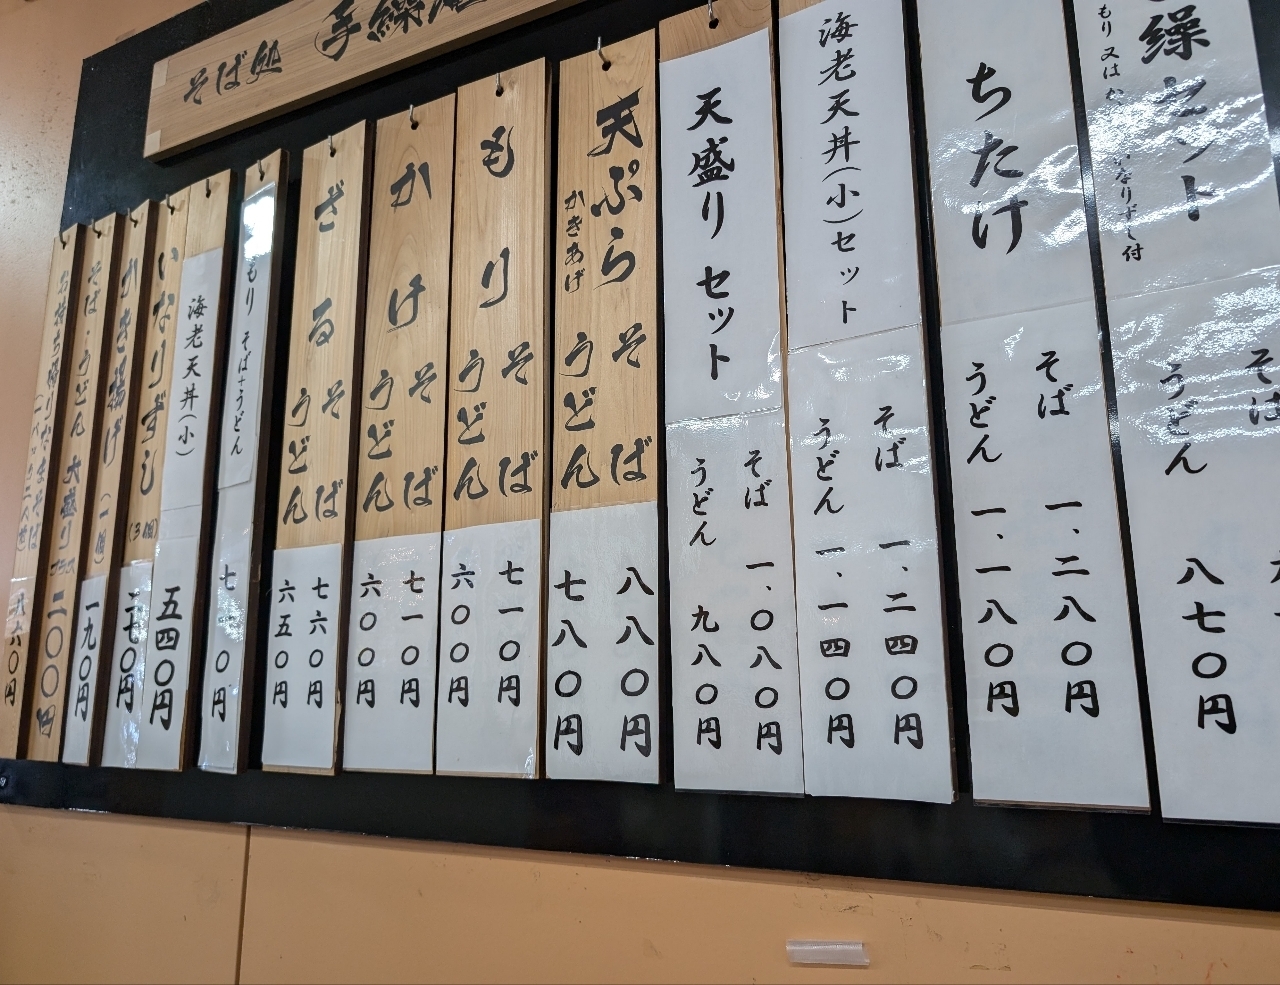 そば処 手繰
繰セット
もり又は
いなりずし付
そば
うどん 八七〇円
ちたけ
そば 一、二八〇円
うどん 一、一八〇円
海老天丼(小)セット
そば 一、二四〇円
うどん 一、一四〇円
天盛りセット
そば 一、〇八〇円
うどん 九八〇円
天ぷら
かきあげ
そば 八八〇円
うどん 七八〇円
もり
そば 七一〇円
うどん 六〇〇円
かけ
そば 七一〇円
うどん 六〇〇円
ざる
そば 七六〇円
うどん 六五〇円
もり そば+うどん 七一〇円
海老天丼(小) 五四〇円
いなりずし(3個) 二七〇円
かき揚げ(一個) 一九〇円
そば・うどん 大盛り プラス 二〇〇円
お持ち帰りなまそば
八六〇円